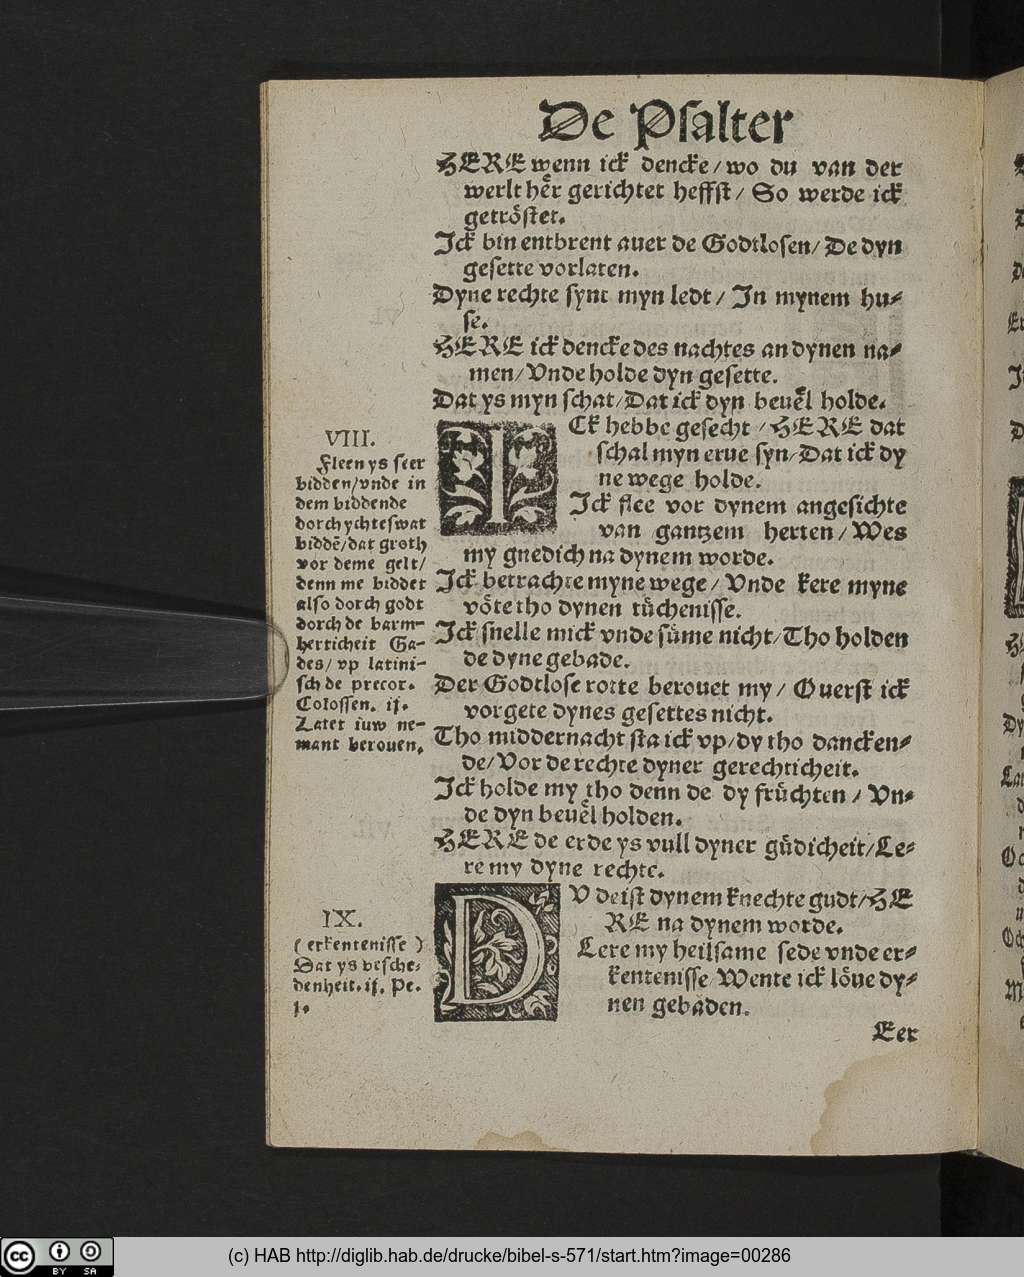 De Psalter
HERE wenn ick dencke/wo du van der
werlt hër gerichtet heffst/ So werde ick
getröstet.
Ick bin entbrent auer de Godtlosen/De dyn
gesette vorlaten.
Dyne rechte synt myn ledt/ In mynem hu-
se.
HERE ick dencke des nachtes an dynen na-
men/Vnde holde dyn gesette.
Dat ys myn schat/Dat ick dyn beuel holde.
VIII.
Fleen ys seer
bidden/vnde in
dem biddende
dorch ychteswat
biddē/dat groth
vor deme gelt/
denn me biddet
also dorch godt
dorch de barm-
herticheit Ga-
des/ vp latini-
sch de precor.
Colossen. ij.
Latet iuw ne-
mant berouen.
ICk hebbe gesecht/HERE dat
schal myn erue syn/Dat ick dy
ne wege holde.
Ick flee vor dynem angesichte
van gantzem herten/Wes
my gnedich na dynem worde.
Ick betrachte myne wege/ Vnde kere myne
vöte tho dynen tüchenisse.
Ick snelle mick vnde süme nicht/Tho holden
de dyne gebade.
Der Godtlose rotte berouet my/ Ouerst ick
vorgete dynes gesettes nicht.
Tho middernacht sta ick vp/dy tho dancken-
de/Vor de rechte dyner gerechticheit.
Ick holde my tho denn de dy früchten/ Vn-
de dyn beuel holden.
HERE de erde ys vull dyner güdicheit/Le-
re my dyne rechte.
IX.
(erkentenisse)
Dat ys besche-
denheit. ij. Pe.
j.
DV deist dynem knechte gudt/HE
RE na dynem worde.
Lere my heilsame sede vnde er-
kentenisse/Wente ick löue dy-
nen gebaden.
Eer
cc
BY SA
(c) HAB http://diglib.hab.de/drucke/bibel-s-571/start.htm?image=00286